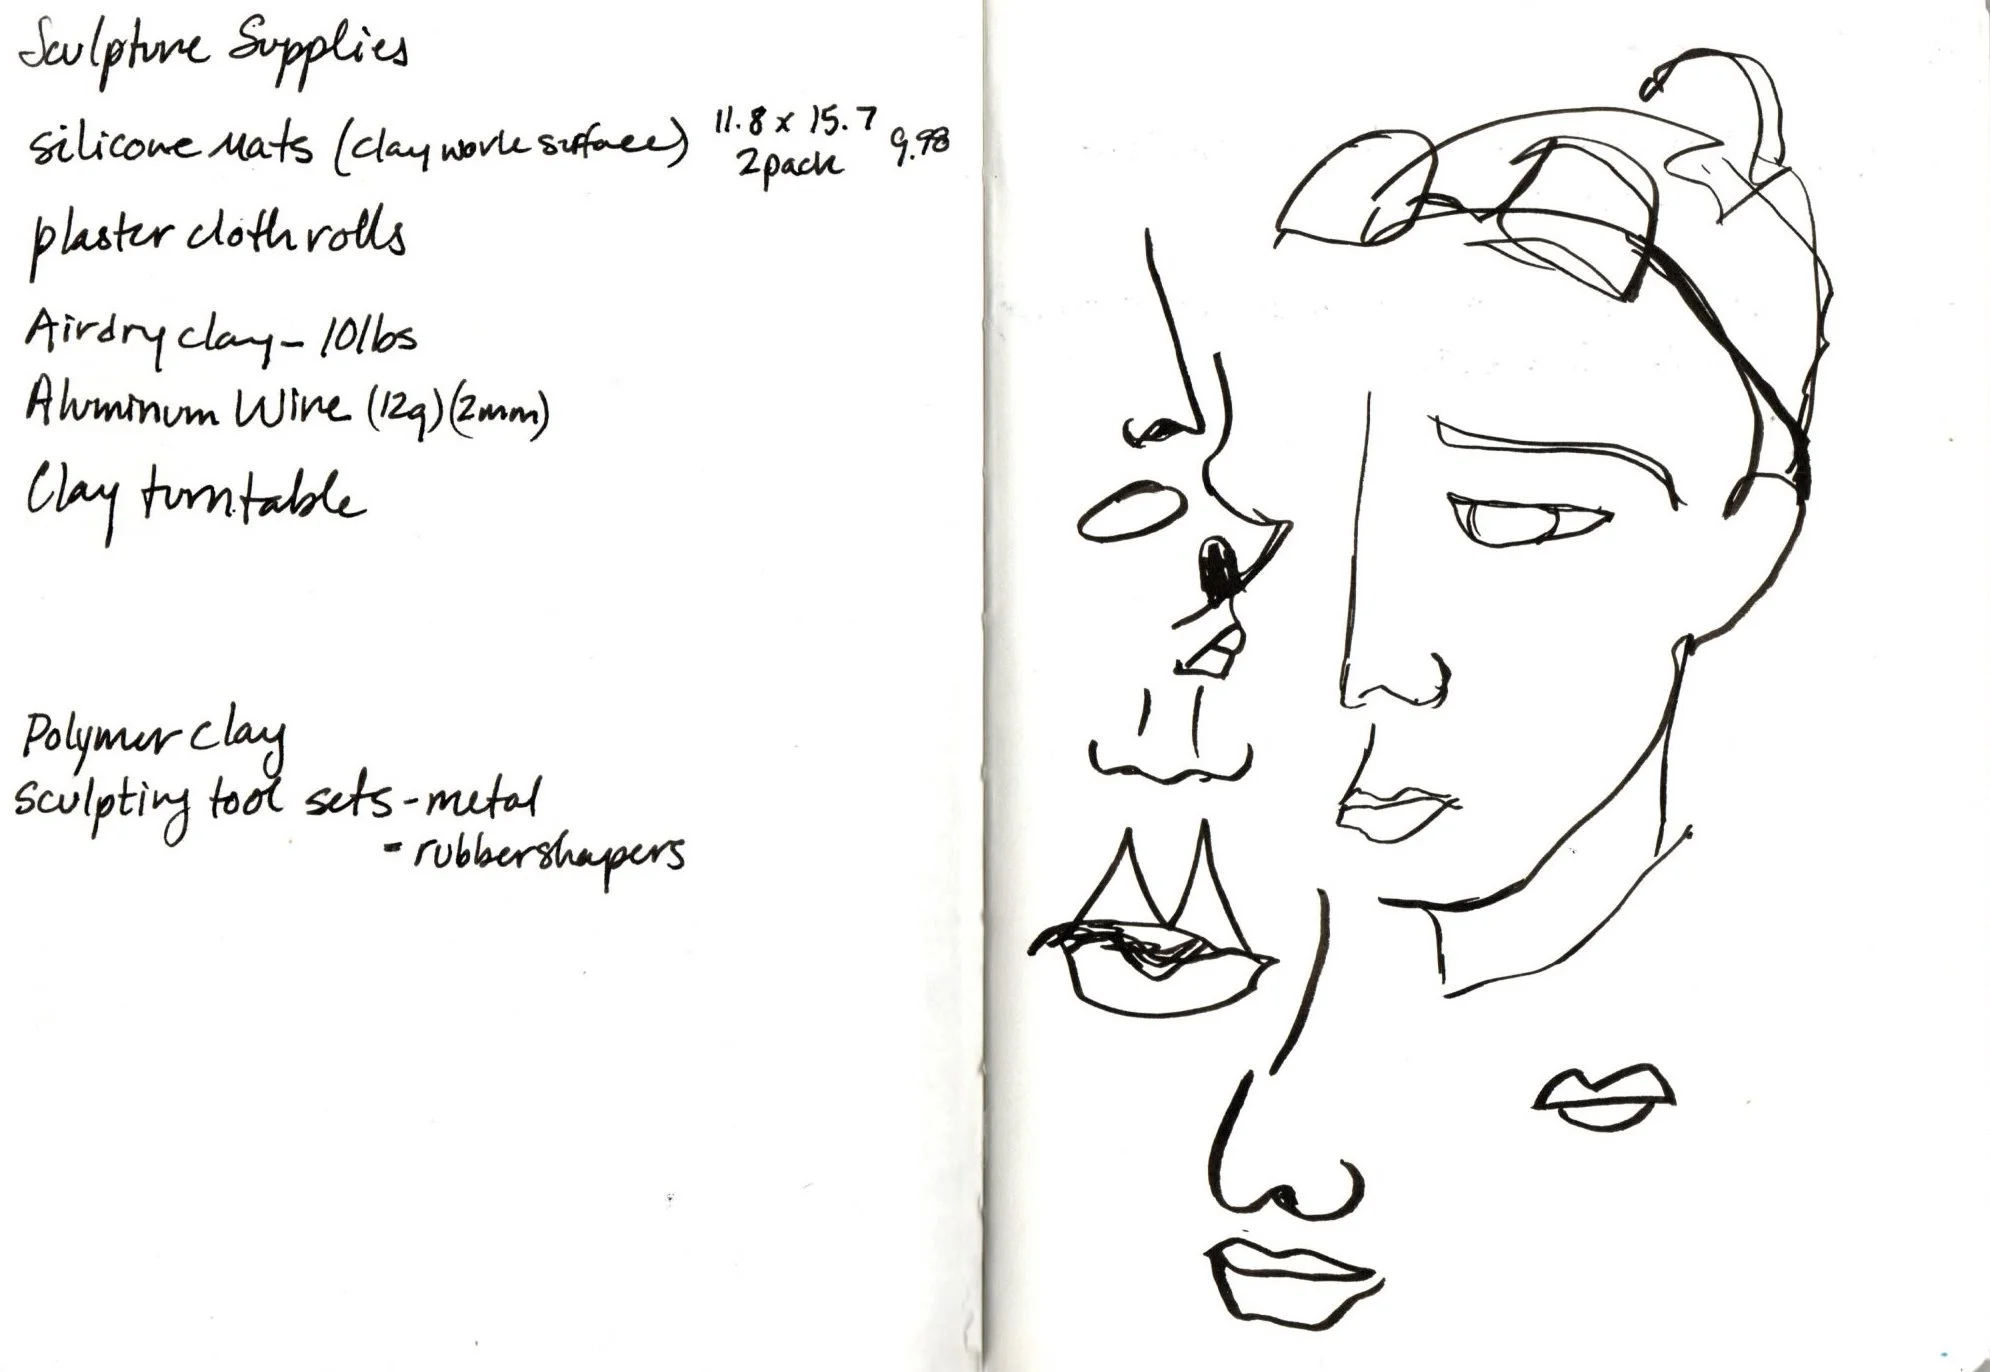 Sculpture Supplies
silicone mats (clay work surface) 11.8 x 15.7
2 pack 9.98
plaster cloth rolls
Airdry clay - 10 lbs
Aluminum Wire (12g) (2mm)
Clay turntable
Polymer clay
sculpting tool sets - metal
- rubber shapers